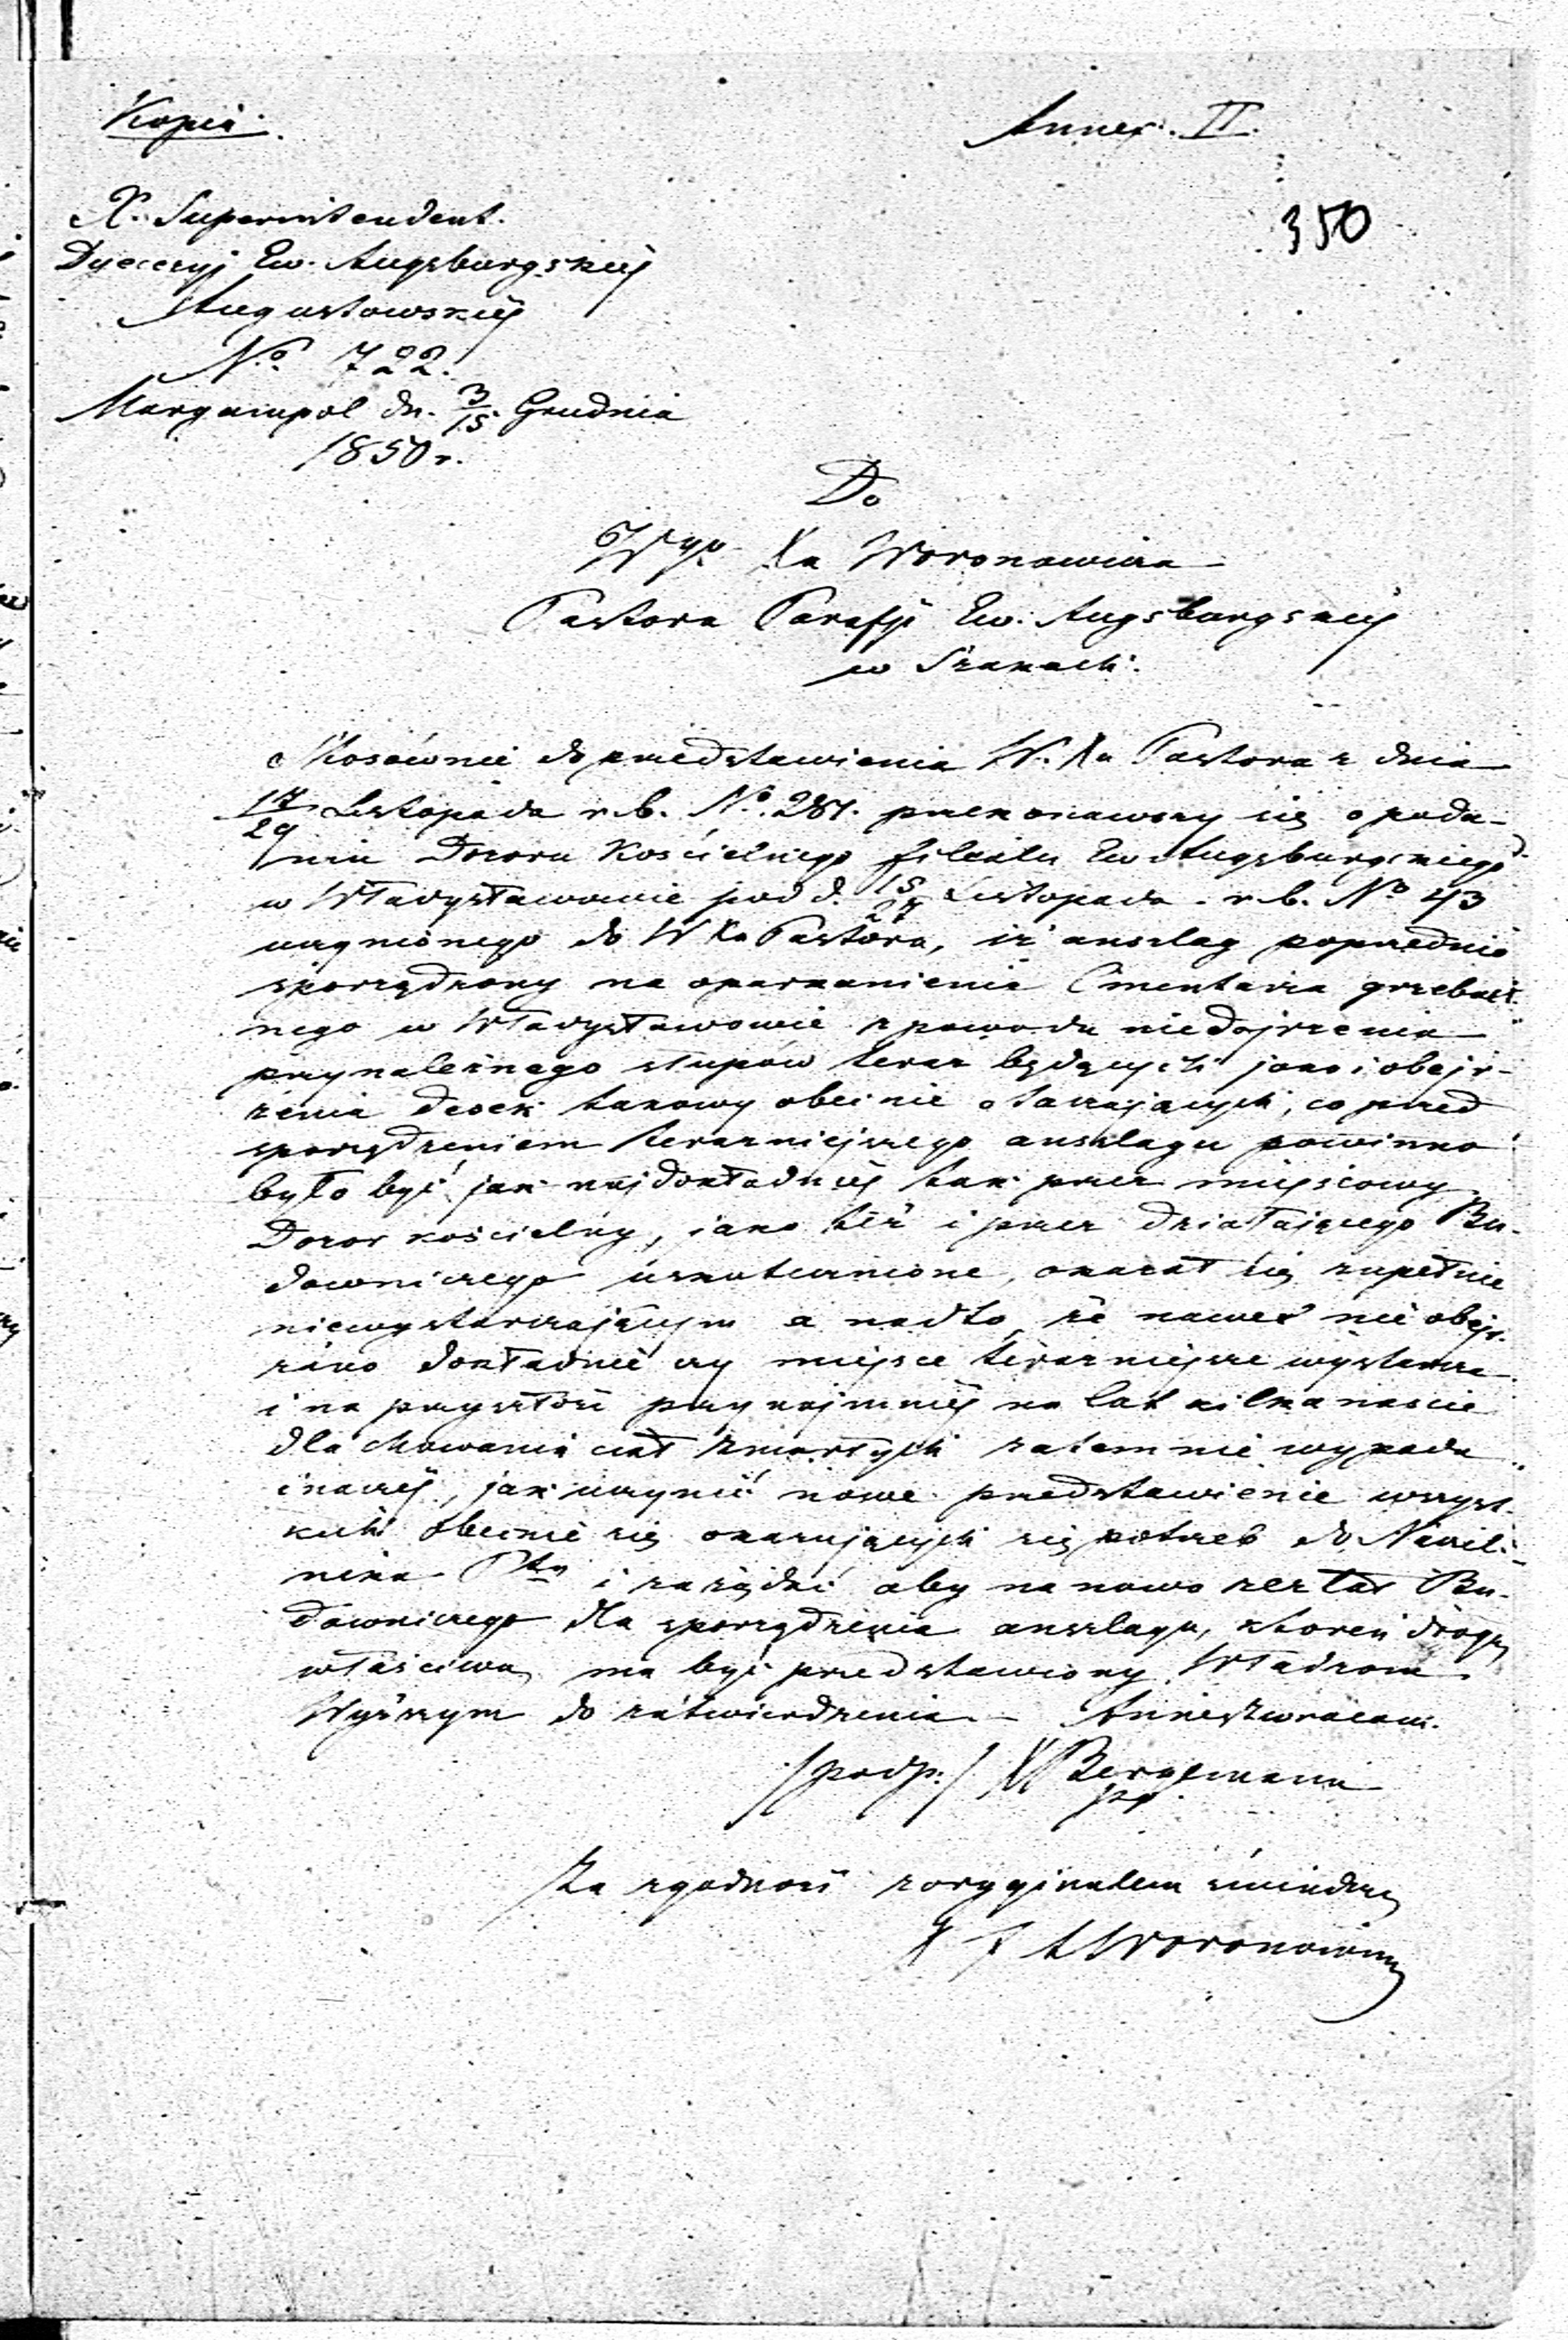 Kopia.
Annex. II.
350
X. Superintendent
Dyecezyi Ew. Augsburgskiéj
Augustowskiéj
No. 722.
Maryampol dn. 3/15 Grudnia
1850 r.
Do
Wgo Xa Woronowicza
Pastora Parafji Ew. Augsburgskiéj
w Szakach.
Stosównie do przedstawienia W. Xa Pastora z dnia
17/29 Listopada r. b. No. 281. przekonawszy się o poda-
niu Dozoru Kościelnego filiału Ew. Augsburgskiego
w Władysławowie pod d. 15/27 Listopada r. b. No 43
uczynionego do W Xa Pastora, iż anszlag poprzednio
sporządzony na oparkanienie Cmentarza grzebal-
nego w Władysławowie z powodu niedojrzenia
przynależnego słupów teraz będących jako i obejr-
zenia desek takowy obecnie otaczających, co przed
sporządzeniem terazniejszego anszlagu powinno
było być jak najdokładniéj tak przez miejscowy
Dozor kościelny, jako też i przez działającego Bu-
downiczego uskutecznione, okazał się zupełnie
niewystarczającym a nadto, że nawet nie obejr-
zano dokładnie czy miejsce terazniejsze wystarcza
i na przyszłość przynajmniéj na lat kilkanaście
dla chowania ciał zmarłych zatem nie wypada
inaczéj, jak uczynić nowe przedstawienie wszyst-
kich obecnie się okazujących się potrzeb do Naczel-
nika Ptu i zażądać aby na nowo zesłał Bu-
downiczego dla sporządzenia anszlagu, ktoren drogą
właściwą ma być przedstawiony Władzom
Wyższym do zatwierdzenia. – Annex zwracam.
/podp:/ X Bergemann
Za zgodność z oryginałem świadczę
X Woronowicz